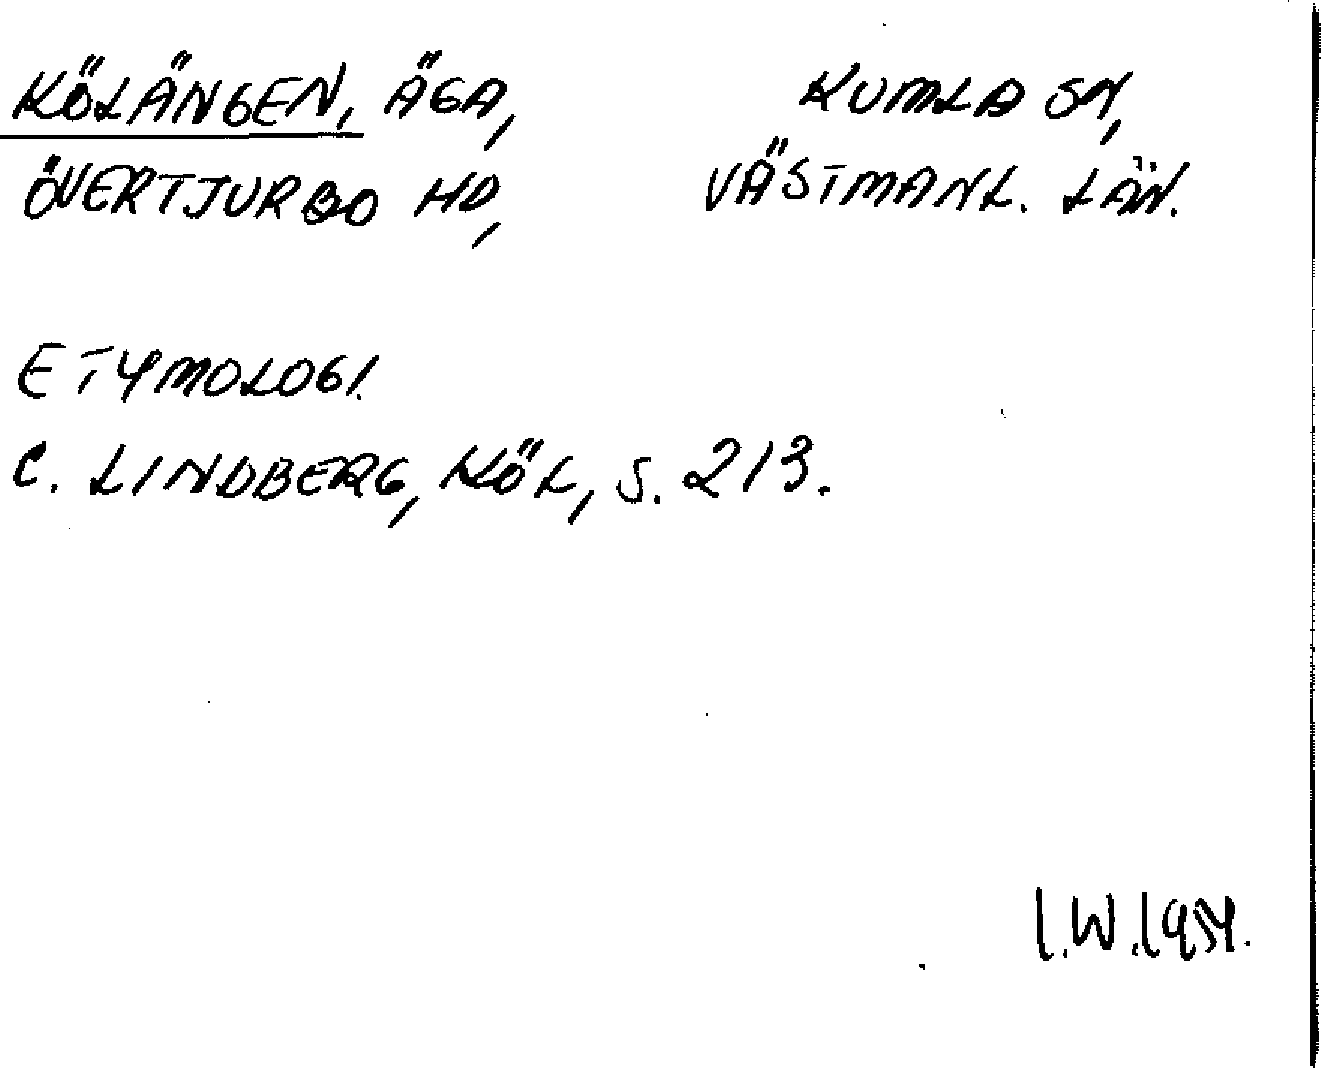 KÖLÄNGEN, ÄGA, KUMLA SN,
ÖVERTJURBO HD, VÄSTMANL. LÄN.
ETYMOLOGI.
C. LINDBERG, KÖL, S. 213.
I.W.1954.